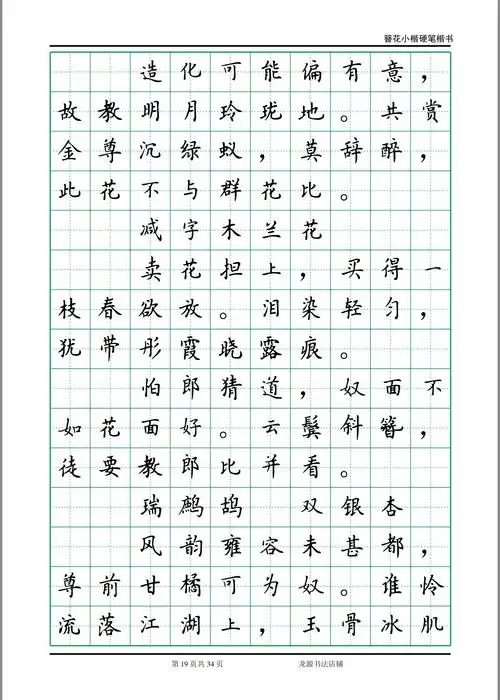 簪花小楷硬笔楷书
造化可能偏有意，
故教明月玲珑地。共赏
金尊沉绿蚁，莫辞醉，
此花不与群花比。
减字木兰花
卖花担上，买得一
枝春欲放。泪染轻匀，
犹带彤霞晓露痕。
怕郎猜道，奴面不
如花面好。云鬓斜簪，
徒要教郎比并看。
瑞鹧鸪 双银杏
风韵雍容未甚都，
尊前甘橘可为奴。谁怜
流落江湖上，玉骨冰肌
第 19 页共 34 页 龙源书法店铺